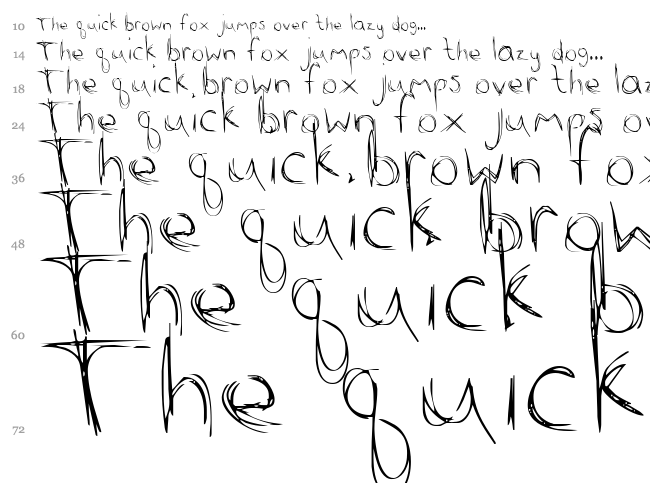 10 The quick brown fox jumps over the lazy dog...
14 The quick brown fox jumps over the lazy dog...
18 The quick brown fox jumps over the laz
24 The quick brown fox jumps ov
36 The quick brown fox
48 The quick brow
60 The quick b
72 The quick